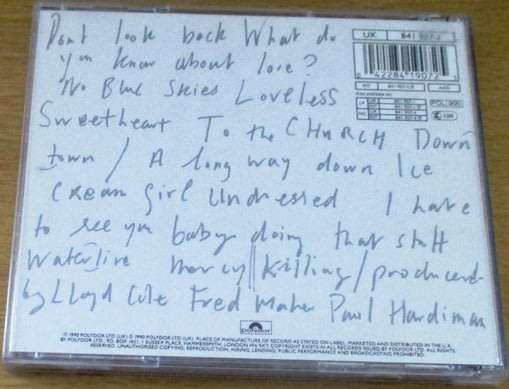 Dont look back What do
you know about love?
No Blue Skies Loveless
Sweetheart To the CHURCH Down
town / A long way down Ice
Cream Girl Undressed I hate
to see you baby doing that stuff
Waterline Mercy Killing / produced
by Lloyd Cole Fred Maher Paul Hardiman
UK 841 907-2
0 42284 19072
POL 900
polydor
℗ 1990 POLYDOR LTD. (UK) © 1990 POLYDOR LTD. (UK). PLACE OF MANUFACTURE OF RECORD AS STATED ON LABEL. MARKETED AND DISTRIBUTED IN THE U.K.
BY POLYDOR LTD., P.O. BOX 1421, 1 SUSSEX PLACE, HAMMERSMITH, LONDON W6 9XT. COPYRIGHT EXISTS IN ALL RECORDS ISSUED BY POLYDOR LTD. ALL RIGHTS
RESERVED. UNAUTHORISED COPYING, REPRODUCTION, HIRING, LENDING, PUBLIC PERFORMANCE AND BROADCASTING PROHIBITED.